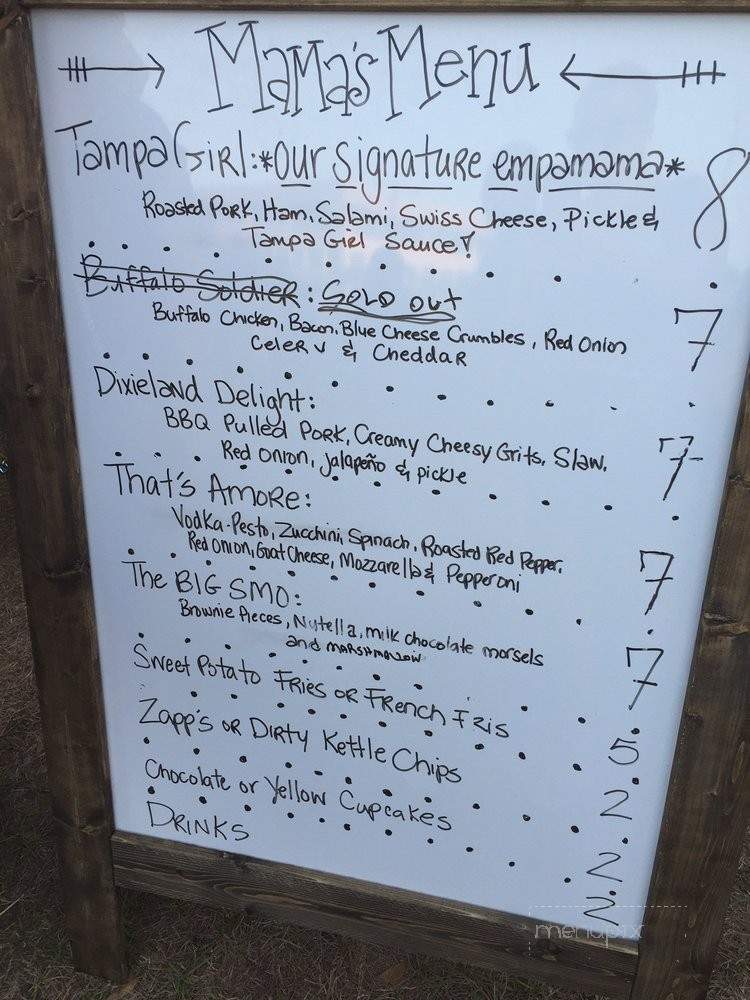 Mama's Menu
Tampa Girl: *our signature empamama* 8
Roasted Pork, Ham, Salami, Swiss Cheese, Pickle &
Tampa Girl Sauce!
Buffalo Soldier: Sold out
Buffalo Chicken, Bacon, Blue Cheese Crumbles, Red Onion 7
Celery & Cheddar
Dixieland Delight:
BBQ Pulled Pork, Creamy Cheesy Grits, Slaw, 7
Red Onion, Jalapeño & pickle
That's Amore:
Vodka-Pesto, Zucchini, Spinach, Roasted Red Pepper, 7
Red Onion, Goat Cheese, Mozzarella & Pepperoni
The BIG SMO:
Brownie Pieces, Nutella, milk chocolate morsels 7
and MARSHMALLOW
Sweet Potato Fries or French Fris 5
Zapp's or Dirty Kettle Chips 2
Chocolate or Yellow Cupcakes 2
DRINKS 2
menupix